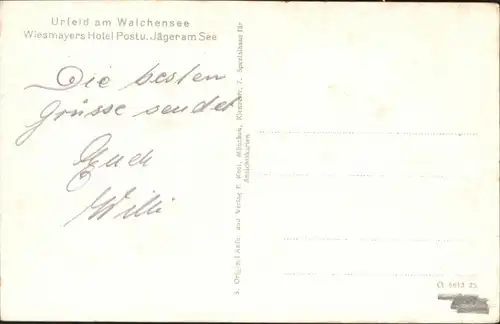 Urfeld am Walchensee
Wiesmayers Hotel Post u. Jäger am See
Die besten
Grüsse sendet
Euch
Willi
Original Aufn. und Verlag
München,
7. Spezialhaus für
Ansichtskarten